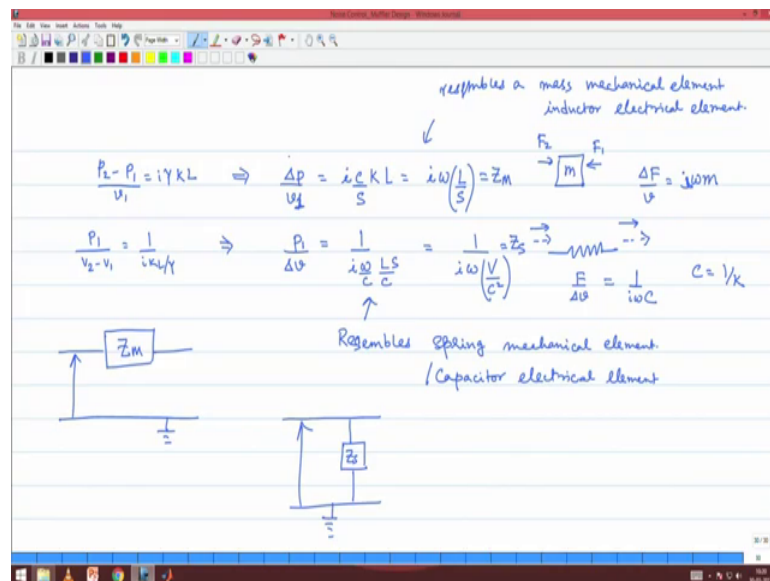 Noise Control_Muffler Design - Windows Journal
File Edit View Insert Actions Tools Help
Page Width
B I
resembles a mass mechanical element
inductor electrical element.
(P₂ - P₁)/v₁ = iYkL ⇒ Δp/v₁ = i(c/S) K L = iω(L/S) = Zₘ F₂ → m ← F₁ ΔF/v = iωm
P₁/(v₂ - v₁) = 1/(iKL/Y) ⇒ P₁/Δv = 1/((iω/c)(LS/c)) = 1/(iω(V/c²)) = Zₛ F/Δv = 1/(iωC) C = 1/K
Resembles spring mechanical element.
/Capacitor electrical element
Zₘ
Zₛ
30/30